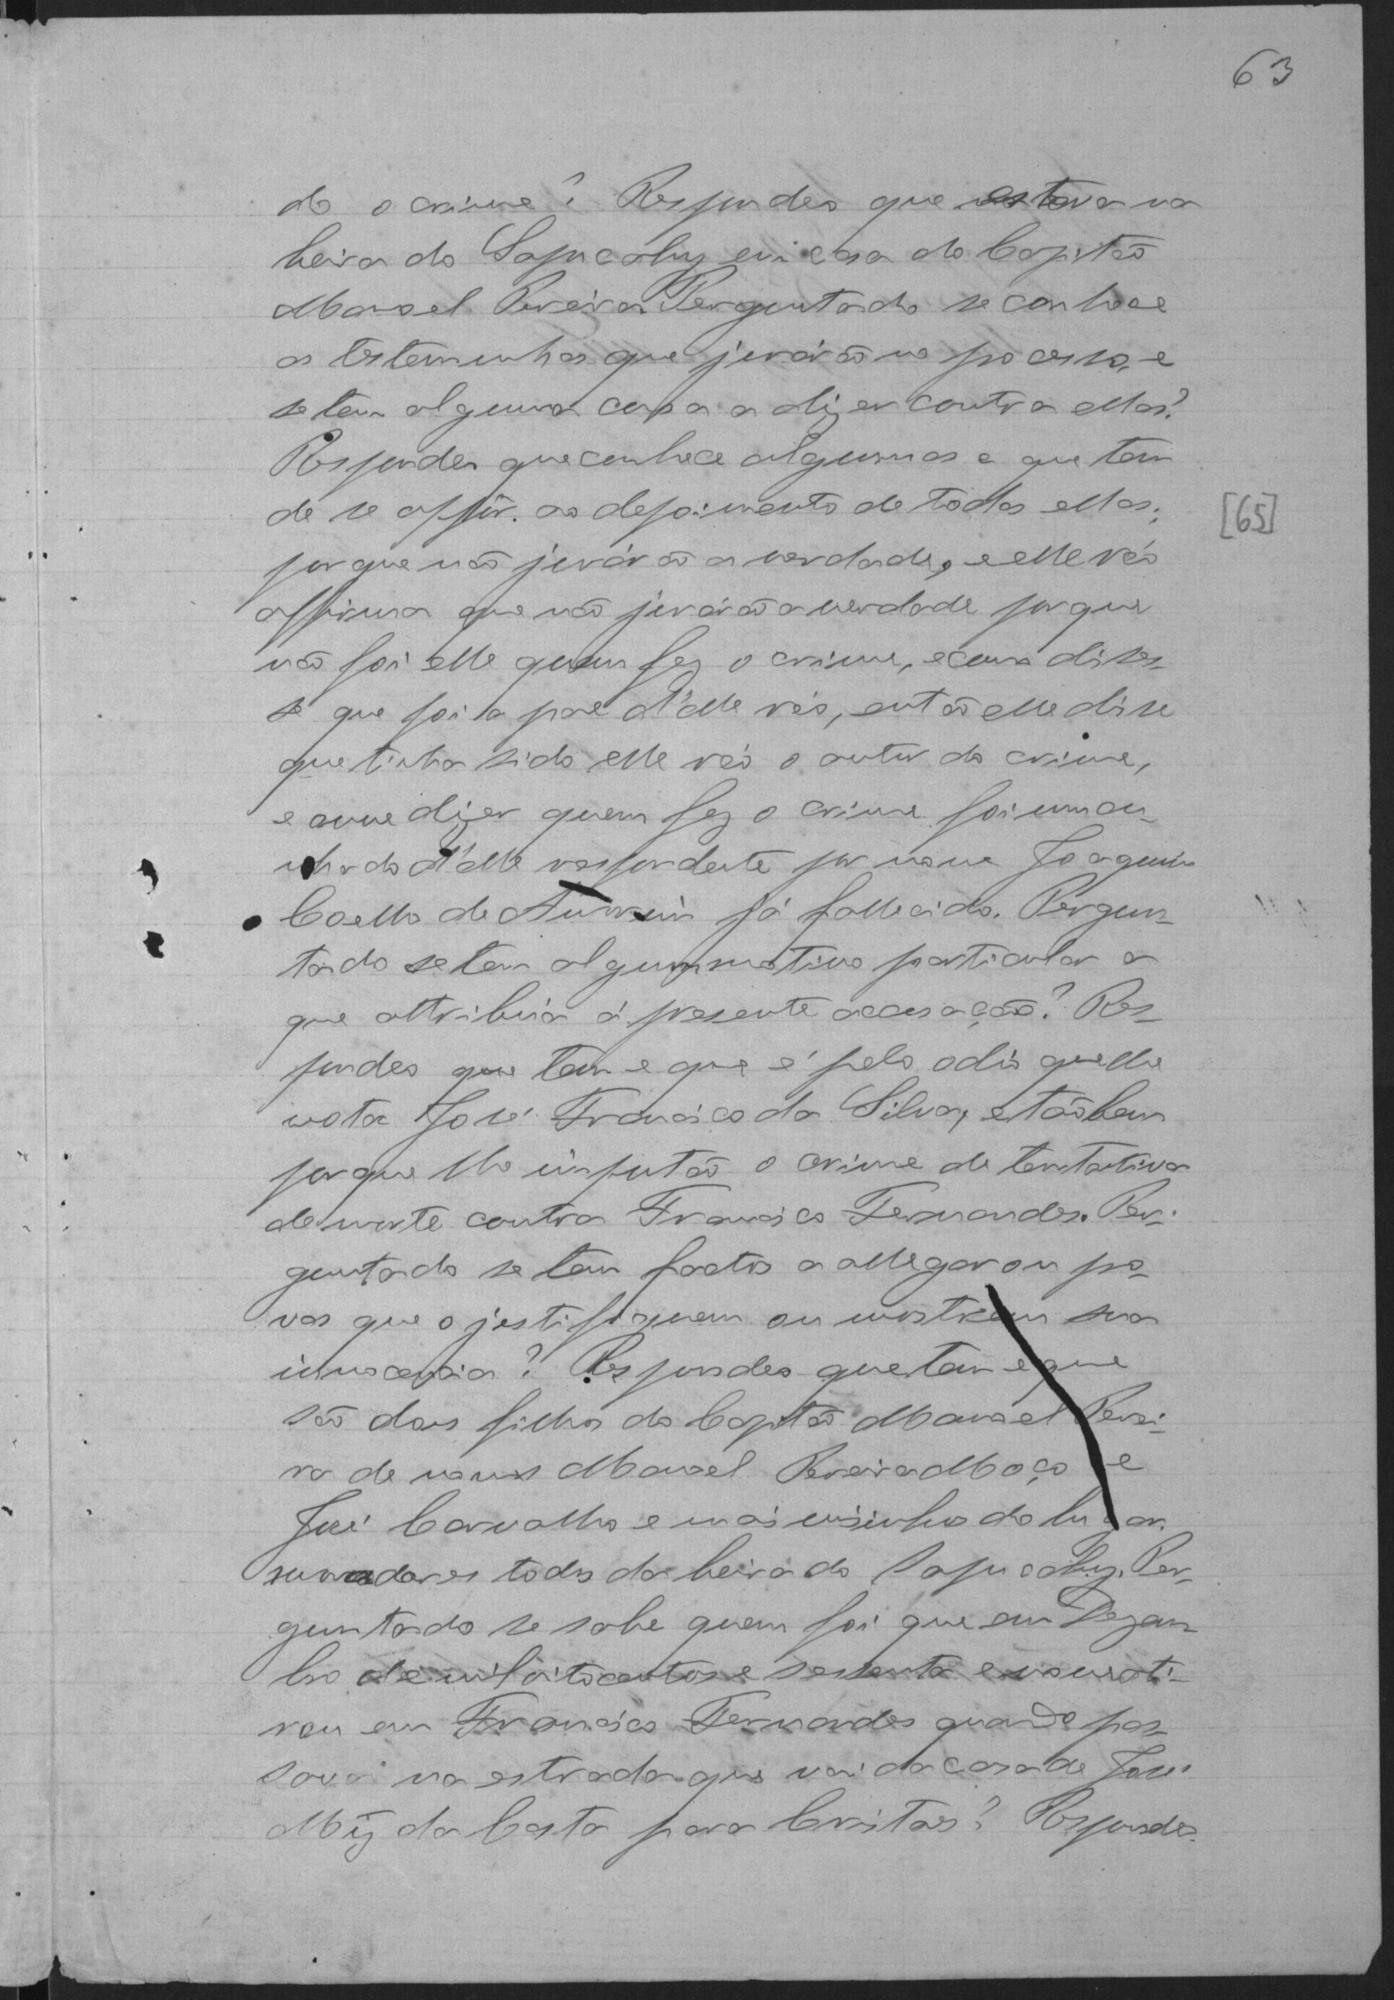 63
do o crime? Respondeo que estava na
beira do Sapucahy em casa do Capitão
Manoel Pereira Perguntado se conhece
as testemunhas que jurárão no processo, e
se tem alguma cousa a dizer contra ellas?
Respondeo que conhece algumas e que tem
de se oppôr. ao depoimento de todas ellas;
porque não jurárão a verdade, e elle réo
affirma que não jurárão a verdade porque
não foi elle quem fez o crime, e como disses-
se que foi o pae d'elle réo, então elle disse
que tinha sido elle réo o autor do crime,
e ouve dizer quem fez o crime foi um cu-
nhado d'elle respondente por nome Joaquim
Coelho de já fallecido. Pergun-
tado se tem algum motivo particular a
que attribua á presente accusação? Res-
pondeo que tem e que é pelo odio que lhe
vota José Francisco da Silva, e tãobem
porque lhe imputão o crime de tentativa
de morte contra Francisco Fernandes. Per-
guntado se tem factos a allegar ou pro-
vas que o justifiquem ou mostrem sua
innocencia? Respondeo que tem e que
são dous filhos do Capitão Manoel Perei-
ra de nomes Manoel Pereira Moço e
José Carvalho e mais visinhos do lugar
moradores todos da beira do Sapucahy. Per-
guntado se sabe quem foi que em Dezem-
bro de mil oitocentos e sessenta e nove ati-
rou em Francisco Fernandes quando pas-
sava na estrada que vai da casa de José
Miz da Costa para Cristaes? Respondeo
[65]